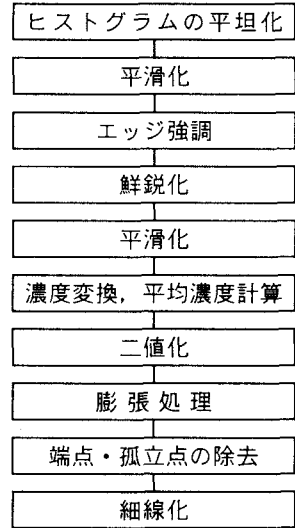 ヒストグラムの平坦化
平滑化
エッジ強調
鮮鋭化
平滑化
濃度変換，平均濃度計算
二値化
膨張処理
端点・孤立点の除去
細線化